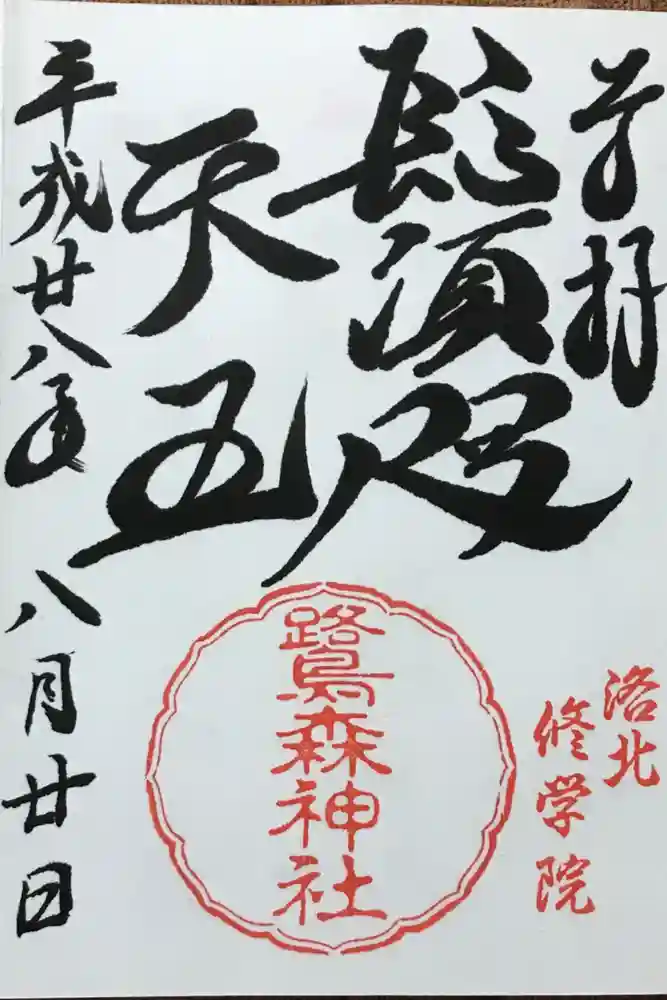 奉拝
洛北
修学院
鬚咫
天王
鷺森神社
平成廿八年 八月廿日